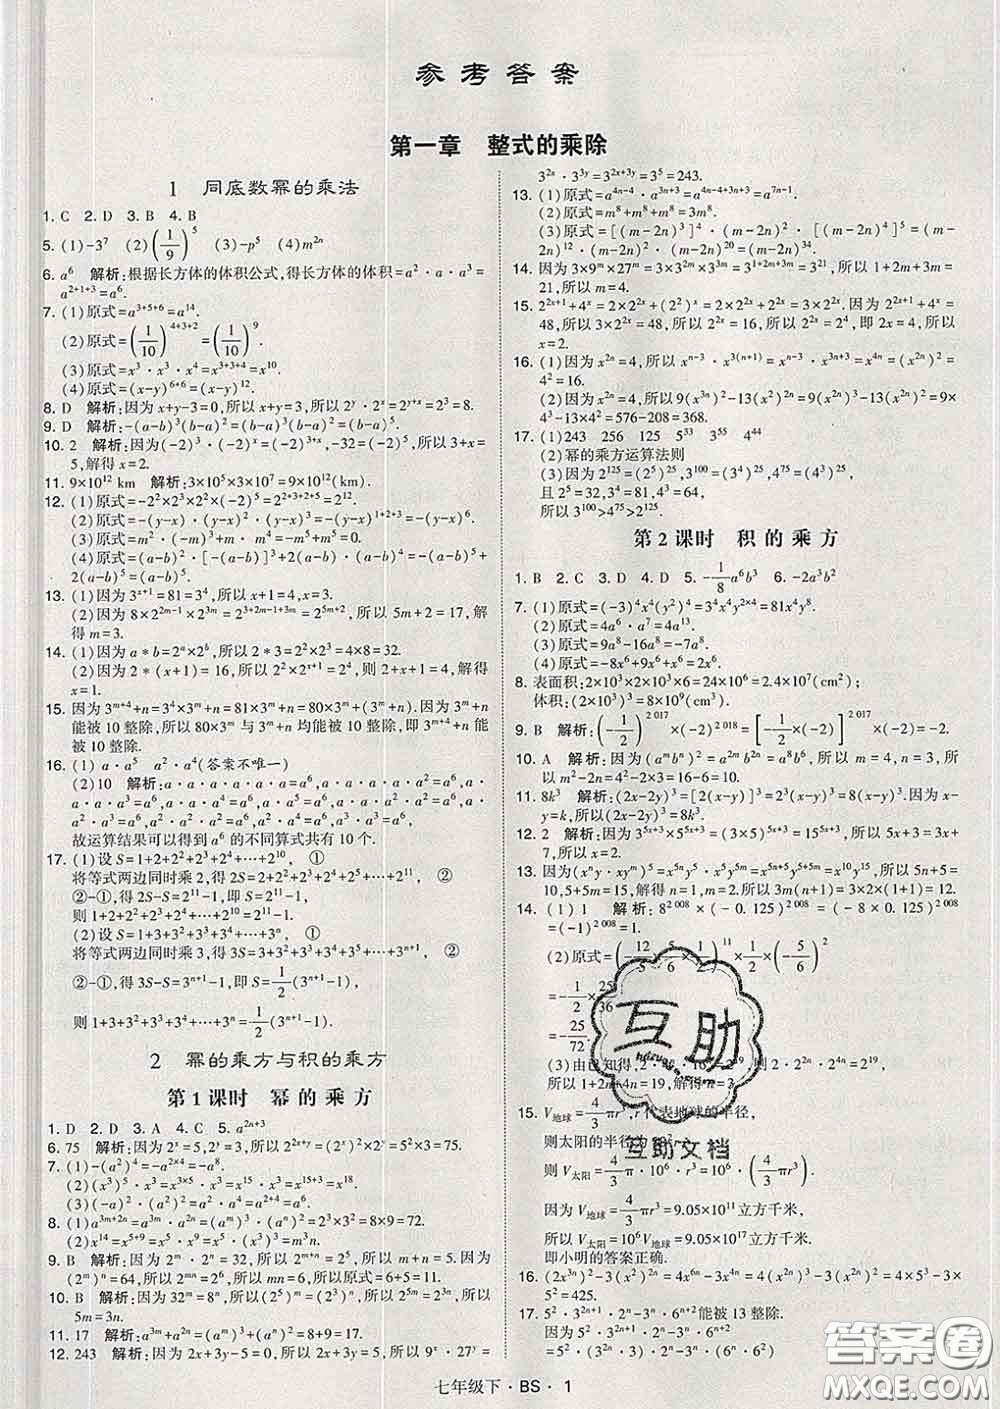 参考答案
第一章　整式的乘除
1　同底数幂的乘法
1. C　2. D　3. B　4. B
5. (1)-3⁷　(2)(1/9)⁵　(3)-p⁵　(4)m²ⁿ
6. a⁶　解析:根据长方体的体积公式,得长方体的体积=a²·a·a³=
a²⁺¹⁺³=a⁶.
7. (1)原式=a³⁺⁵⁺⁶=a¹⁴.
(2)原式=(1/10)⁴⁺³⁺²=(1/10)⁹.
(3)原式=x³·x³·x⁴=x³⁺³⁺⁴=x¹⁰.
(4)原式=(x-y)⁶⁺⁶=(x-y)¹².
8. D　解析:因为x+y-3=0,所以x+y=3,所以2ʸ·2ˣ=2ˣ⁺ʸ=2³=8.
9. D　解析:-(a-b)³(b-a)²=(b-a)³(b-a)²=(b-a)⁵.
10. 2　解析:因为(-2)³·(-2)ˣ=(-2)³⁺ˣ,-32=(-2)⁵,所以3+x=
5,解得x=2.
11. 9×10¹² km　解析:3×10⁵×3×10⁷=9×10¹²(km).
12. (1)原式=-2²×2³×2²×(-2)⁵=2²⁺³⁺²⁺⁵=2¹².
(2)原式=-(y-x)·(y-x)²·(y-x)³=-(y-x)¹⁺²⁺³=-(y-x)⁶.
(3)原式=m²·(-m)·m·m⁴=-m⁵+m⁵=0.
(4)原式=(a-b)²·[-(a-b)³]+2(a-b)·(a-b)⁴=-(a-b)⁵
+2(a-b)⁵=(a-b)⁵.
13. (1)3ˣ⁺¹=81=3⁴,所以x+1=4,所以x=3.
(2)8×2²ᵐ⁻¹×2³ᵐ=2³×2²ᵐ⁻¹×2³ᵐ=2³⁺²ᵐ⁻¹⁺³ᵐ=2¹⁷,所以5m+2=17,解
得m=3.
14. (1)因为a*b=2ᵃ×2ᵇ,所以2*3=2²×2³=4×8=32.
(2)因为2*(x+1)=16,所以2²×2ˣ⁺¹=2⁴,则2+x+1=4,解得
x=1.
15. 因为3ᵐ⁺⁴+n=3⁴×3ᵐ+n=81×3ᵐ+n=80×3ᵐ+(3ᵐ+n),因为3ᵐ+n
能被10整除,所以80×3ᵐ与3ᵐ+n均能被10整除,即3ᵐ⁺⁴+n能
被10整除.
16. (1)a·a⁵　a²·a⁴(答案不唯一)
(2)10　解析:a·a·a·a·a·a=a⁶,a·a·a·a·a²=a⁶,a·
a·a·a³=a⁶,a·a·a⁴=a⁶,a·a⁵=a⁶,a·a²·a³=a⁶,a·a·
a²·a²=a⁶,a²·a²·a²=a⁶,a³·a³=a⁶,a²·a⁴=a⁶,
故运算结果可以得到a⁶的不同算式共有10个.
17. (1)设S=1+2+2²+2³+2⁴+…+2¹⁰,　①
将等式两边同时乘2,得2S=2+2²+2³+2⁴+…+2¹¹,　②
②-①,得2S-S=2¹¹-1,即S=2¹¹-1,
则1+2+2²+2³+2⁴+…+2¹⁰=2¹¹-1.
(2)设S=1+3+3²+3³+3⁴+…+3ⁿ,　①
将等式两边同时乘3,得3S=3+3²+3³+3⁴+…+3ⁿ⁺¹,　②
②-①,得3S-S=3ⁿ⁺¹-1,即S=1/2(3ⁿ⁺¹-1),
则1+3+3²+3³+3⁴+…+3ⁿ=1/2(3ⁿ⁺¹-1).
2　幂的乘方与积的乘方
第1课时　幂的乘方
1. D　2. D　3. D　4. A　5. a²ⁿ⁺³
6. 75　解析:因为2ˣ=5,2ʸ=3,所以2²ˣ⁺ʸ=(2ˣ)²×2ʸ=5²×3=75.
7. (1)-(a²)⁴=-a²ˣ⁴=-a⁸.
(2)(x³)⁵·x³=x³ˣ⁵·x³=x¹⁵⁺³=x¹⁸.
(3)(-a)²·(a²)²=a²·a⁴=a²⁺⁴=a⁶.
8. (1)a³ᵐ⁺²ⁿ=a³ᵐ·a²ⁿ=(aᵐ)³·(aⁿ)²=2³×3²=8×9=72.
(2)x¹⁴=x⁵⁺⁹=x⁵·x⁹=x⁵·(x³)³=m³n.
9. B　解析:因为2ᵐ·2ⁿ=32,所以2ᵐ⁺ⁿ=2⁵,所以m+n=5.因为
(2ᵐ)ⁿ=64,所以2ᵐⁿ=2⁶,所以mn=6,所以原式=6+5=11.
10. B　解析:因为32ᵐ=8ⁿ,所以(2⁵)ᵐ=(2³)ⁿ,所以2⁵ᵐ=2³ⁿ,所以
5m=3n.
11. 17　解析:a³ᵐ+a²ⁿ=(aᵐ)³+(aⁿ)²=8+9=17.
12. 243　解析:因为2x+3y-5=0,所以2x+3y=5,所以9ˣ·27ʸ=
3²ˣ·3³ʸ=3²ˣ⁺³ʸ=3⁵=243.
13. (1)原式=a⁴ⁿ⁻⁴·a³ⁿ⁺³=a⁴ⁿ⁻⁴⁺³ⁿ⁺³=a⁷ⁿ⁻¹.
(2)原式=m⁸+m⁸+m⁸=3m⁸.
(3)原式=[(m-2n)³]⁴·[(m-2n)⁴]⁵=(m-
2n)¹²·(m-2n)²·(m-2n)²⁰=(m-2n)³⁴.
14. 因为3×9ᵐ×27ᵐ=3×3²ᵐ×3³ᵐ=3¹⁺²ᵐ⁺³ᵐ=3²¹,所以1+2m+3m=
21,所以m=4.
15. 2²ˣ⁺¹+4ˣ=2×2²ˣ+(2²)ˣ=2×2²ˣ+2²ˣ=3×2²ˣ.因为2²ˣ⁺¹+4ˣ=
48,所以3×2²ˣ=48,所以2²ˣ=16,所以2²ˣ=2⁴,即2x=4,所以
x=2.
16. (1)因为x²ⁿ=4,所以xⁿ⁻³·x³⁽ⁿ⁺¹⁾=xⁿ⁻³·x³ⁿ⁺³=x⁴ⁿ=(x²ⁿ)²=
4²=16.
(2)因为x²ⁿ=4,所以9(x³ⁿ)²-13(x²)²ⁿ=9(x²ⁿ)³-13(x²ⁿ)²=9×
4³-13×4²=576-208=368.
17. (1)243　256　125　5³　3⁵⁵　4⁴⁴
(2)幂的乘方运算法则
(3)因为2¹²⁵=(2⁵)²⁵,3¹⁰⁰=(3⁴)²⁵,4⁷⁵=(4³)²⁵,
且2⁵=32,3⁴=81,4³=64,
所以3¹⁰⁰>4⁷⁵>2¹²⁵.
第2课时　积的乘方
1. B　2. C　3. D　4. D　5. -1/8a⁶b³　6. -2a³b²
7. (1)原式=(-3)⁴x⁴(y²)⁴=3⁴x⁴y²ˣ⁴=81x⁴y⁸.
(2)原式=4a⁶·a⁷=4a¹³.
(3)原式=9a⁸-16a⁸=-7a⁸.
(4)原式=-8x⁶+9x⁶+x⁶=2x⁶.
8. 表面积:2×10³×2×10³×6=24×10⁶=2.4×10⁷(cm²);
体积:(2×10³)³=8×10⁹(cm³).
9. B　解析:(-1/2)²⁰¹⁷×(-2)²⁰¹⁸=[-1/2×(-2)]²⁰¹⁷×(-2)=-2.
10. A　解析:因为(aᵐbⁿ)²=a²ᵐb²ⁿ=a⁸b⁶,所以m=4,n=3,所
以m²-2n=4²-2×3=16-6=10.
11. 8k³　解析:(2x-2y)³=[2(x-y)]³=2³(x-y)³=8(x-y)³.因为x-
y=k,所以(2x-2y)³=8k³.
12. 2　解析:因为3⁵ˣ⁺³×5⁵ˣ⁺³=(3×5)⁵ˣ⁺³=15⁵ˣ⁺³,所以5x+3=3x+
7,所以x=2.
13. 因为(xⁿy·xyᵐ)⁵=x⁵ⁿy⁵·x⁵y⁵ᵐ=x⁵ⁿ⁺⁵y⁵⁺⁵ᵐ=x¹⁰y¹⁵,所以5n+5=
10,5+5m=15,解得n=1,m=2,所以3m(n+1)=3×2×(1+1)=12.
14. (1)1　解析:8²⁰⁰⁸×(-0.125)²⁰⁰⁸=(-8×0.125)²⁰⁰⁸
=(-1)²⁰⁰⁸=1.
(2)原式=(12/5×5/6×1/2)¹¹×(-5/6)²
=-1/2×25/36
=-25/72
(3)由已知得,2·4ⁿ·16ⁿ=2¹⁹,则2·2²ⁿ·2⁴ⁿ=2¹⁹,
所以1+2n+4n=19,解得n=3
15. V地球=4/3πr³,r代表地球的半径,
则太阳的半径为10²r,
则V太阳=4/3π·10⁶·r³=10⁶×(4/3πr³).
因为V地球=4/3πr³=9.05×10¹¹立方千米,
所以V太阳=10⁶V地球=9.05×10¹⁷立方千米,
即小明的答案正确.
16. (2x³ⁿ)²-3(x²)²ⁿ=4x⁶ⁿ-3x⁴ⁿ=4(x²ⁿ)³-3(x²ⁿ)²=4×5³-3×
5²=425.
17. 5²·3²ⁿ⁺¹·2ⁿ-3ⁿ·6ⁿ⁺²能被13整除.
因为5²·3²ⁿ⁺¹·2ⁿ-3ⁿ·6ⁿ⁺²
=5²·(3²ⁿ·3)·2ⁿ-3ⁿ·
互助
互助文档
答案圈
MXQE.COM
七年级下·BS·1